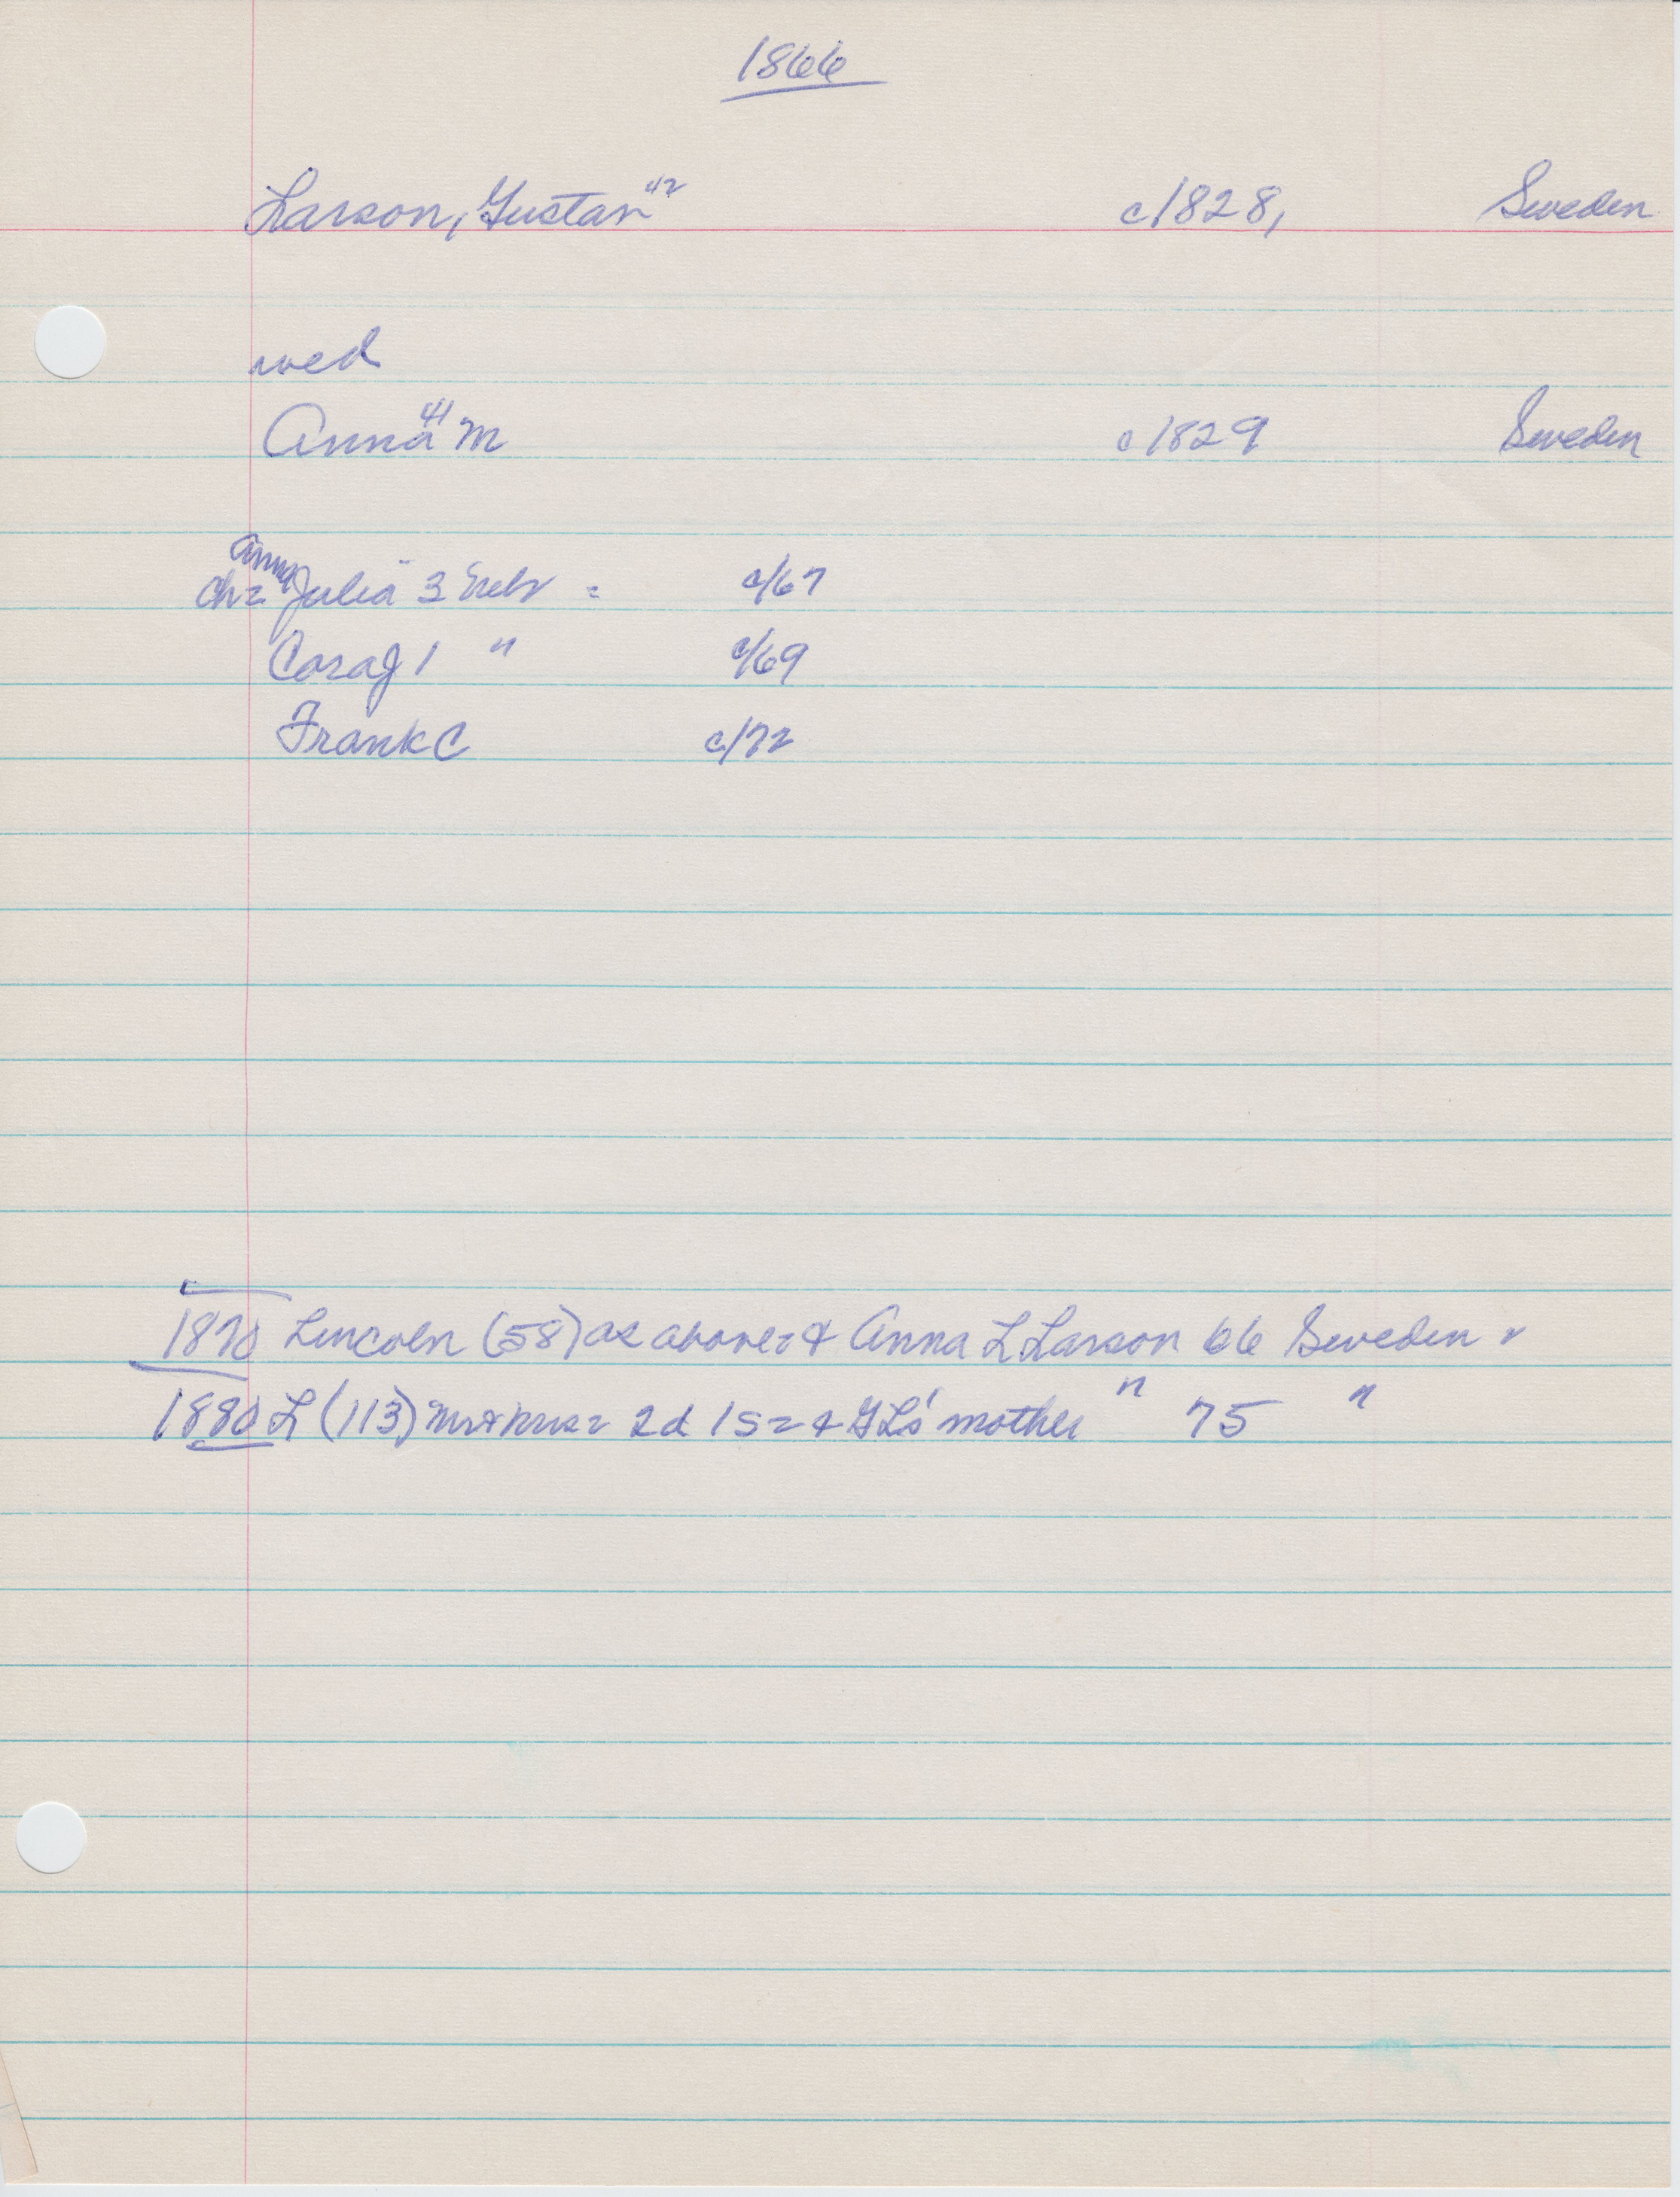 1866
Larson, Gustav 42 c1828, Sweden
wed
Anna 41 M c1829 Sweden
Anna
ch= Julia 3 = c/67
Cora J 1 " c/69
Frank C c/72
1870 Lincoln (58) as above= & Anna L Larson 66 Sweden
1880 L (113) Mr & Mrs= 2d 1s= & GL's mother " 75 "